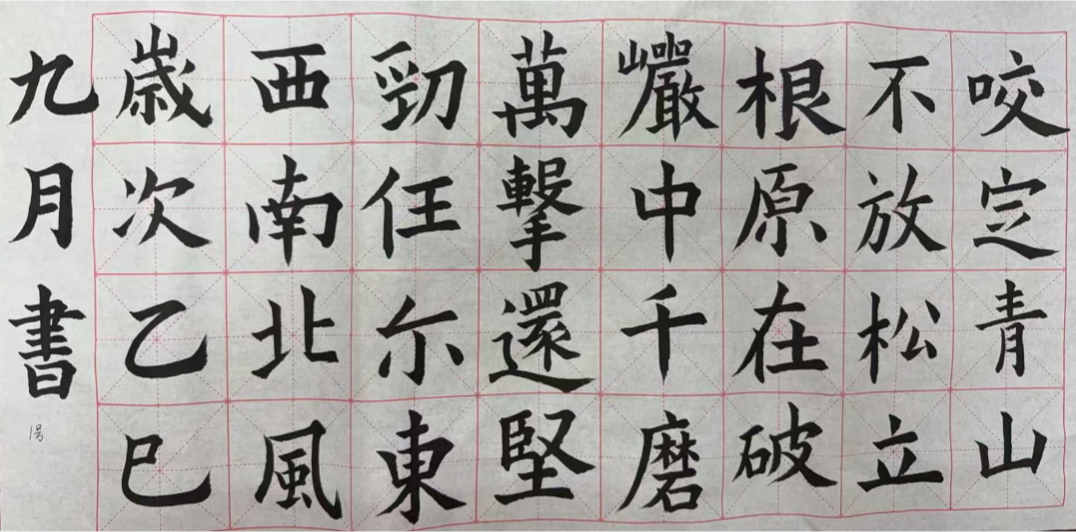 咬定青山
不放松立
根原在破
巗中千磨
萬撃還堅
勁任尓東
西南北風
歲次乙巳
九月書
1号